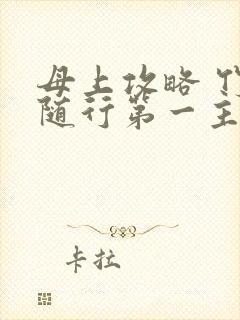 母上攻略
随行第一主
卡拉